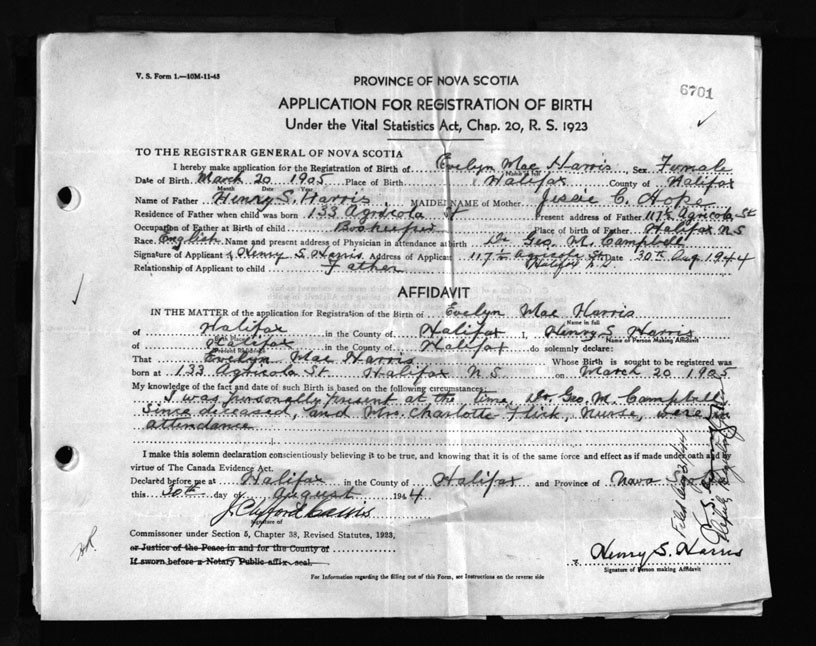 V. S. Form 1.—10M-11-43
PROVINCE OF NOVA SCOTIA
6701
APPLICATION FOR REGISTRATION OF BIRTH
Under the Vital Statistics Act, Chap. 20, R. S. 1923
TO THE REGISTRAR GENERAL OF NOVA SCOTIA
I hereby make application for the Registration of Birth of Evelyn Mae Harris, Sex Female
Name in full
Date of Birth March 20 1905 Place of Birth Halifax County of Halifax
Month Date Year
Name of Father Henry S. Harris, MAIDEN NAME of Mother Jessie C. Hope
Residence of Father when child was born 133 Agricola St Present address of Father 117½ Agricola St
Occupation of Father at Birth of child Bookkeeper Place of birth of Father Halifax N S
Race English Name and present address of Physician in attendance at birth Dr Geo. M. Campbell
Signature of Applicant Henry S Harris Address of Applicant 117½ Agricola St Date 30th Aug 1944
Halifax N.S.
Relationship of Applicant to child Father
AFFIDAVIT
IN THE MATTER of the application for Registration of the Birth of Evelyn Mae Harris
Name in full
of Halifax in the County of Halifax I, Henry S. Harris
Name of Person Making Affidavit
of Halifax in the County of Halifax do solemnly declare:
That Evelyn Mae Harris Whose Birth is sought to be registered was
born at 133 Agricola St. Halifax N S on March 20 1905
My knowledge of the fact and date of such Birth is based on the following circumstances:
I was personally present at the time, Dr. Geo. M. Campbell
Since deceased, and Mrs. Charlotte Flick, Nurse, were in
attendance
I make this solemn declaration conscientiously believing it to be true, and knowing that it is of the same force and effect as if made under oath and by
virtue of The Canada Evidence Act.
Declared before me at Halifax in the County of Halifax and Province of Nova Scotia
this 30th day of August 1944
Signature of
Commissioner under Section 5, Chapter 38, Revised Statutes, 1923,
or Justice of the Peace in and for the County of
If sworn before a Notary Public affix seal.
Henry S. Harris
Signature of Person making Affidavit
For Information regarding the filling out of this Form, see Instructions on the reverse side